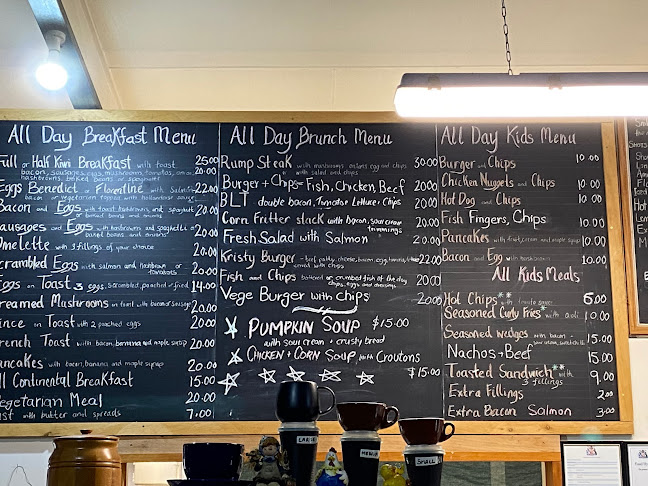 All Day Breakfast Menu
Full or Half Kiwi Breakfast with toast 25.00
bacon, sausages, eggs, mushrooms, tomatoes, 20.00
hashbrowns, baked beans or spaghetti
Eggs Benedict or Florentine with Salmon 22.00
bacon or vegetarian topped with hollandaise sauce 20.00
Bacon and Eggs with toast hashbrowns and spaghetti
or baked beans and onions 20.00
Sausages and Eggs with hashbrowns and spaghetti or
baked beans and onions 20.00
Omelette with 3 fillings of your choice 20.00
Scrambled Eggs with salmon and hashbrown or
tomatoes 20.00
Eggs on Toast 3 eggs, scrambled, poached or fried 14.00
Creamed Mushrooms on toast with bacon or sausage 20.00
Mince on Toast with 2 poached eggs 20.00
French Toast with bacon, banana and maple syrup 20.00
Pancakes with bacon, banana and maple syrup 20.00
All Continental Breakfast 15.00
Vegetarian Meal 20.00
Toast with butter and spreads 7.00
All Day Brunch Menu
Rump Steak with mushrooms onions eggs and chips 30.00
or with salad and chips
Burger + Chips = Fish, Chicken, Beef 20.00
BLT double bacon, Tomatoe Lettuce + Chips 20.00
Corn Fritter stack with bacon, sour cream 20.00
Fresh Salad with Salmon 20.00
Kristy Burger - beef patty, cheese, bacon, egg,
and with chips 22.00
Fish and Chips battered or crumbed fish of the day 20.00
chips, eggs and dressing
Vege Burger with chips 20.00
Pumpkin Soup $15.00
with sour cream + crusty bread
Chicken + Corn Soup with Croutons
$15.00
All Day Kids Menu
Burger and Chips 10.00
Chicken Nuggets and Chips 10.00
Hot Dog and Chips 10.00
Fish Fingers, Chips 10.00
Pancakes with fruit, cream and maple syrup 10.00
Bacon and Egg with hashbrown 10.00
All Kids Meals
Hot Chips ** with tomato sauce 5.00
Seasoned Curly Fries * with aioli 10.00
Seasoned Wedges with bacon 15.00
Nachos + Beef 15.00
Toasted Sandwich ** with 9.00
3 fillings
Extra Fillings 2.00
Extra Bacon Salmon 3.00
LARGE
MEDIUM
SMALL